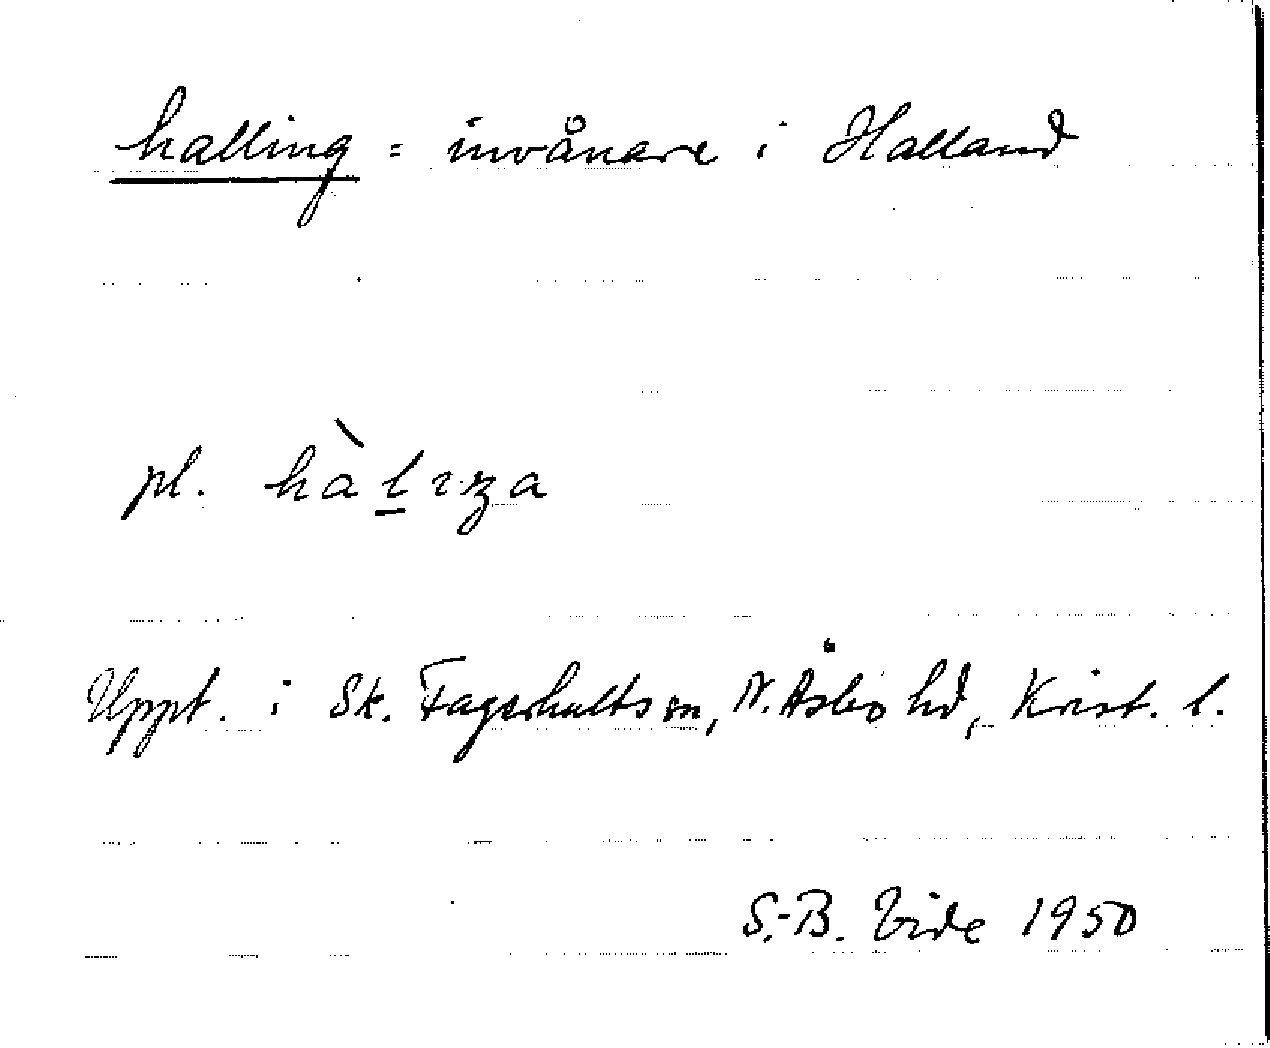 halling = invånare i Halland
pl. hàlıŋa
Uppt. i Sk. Fagerhults sn, N. Åsbo hd, Krist. l.
S.-B. Vide 1950